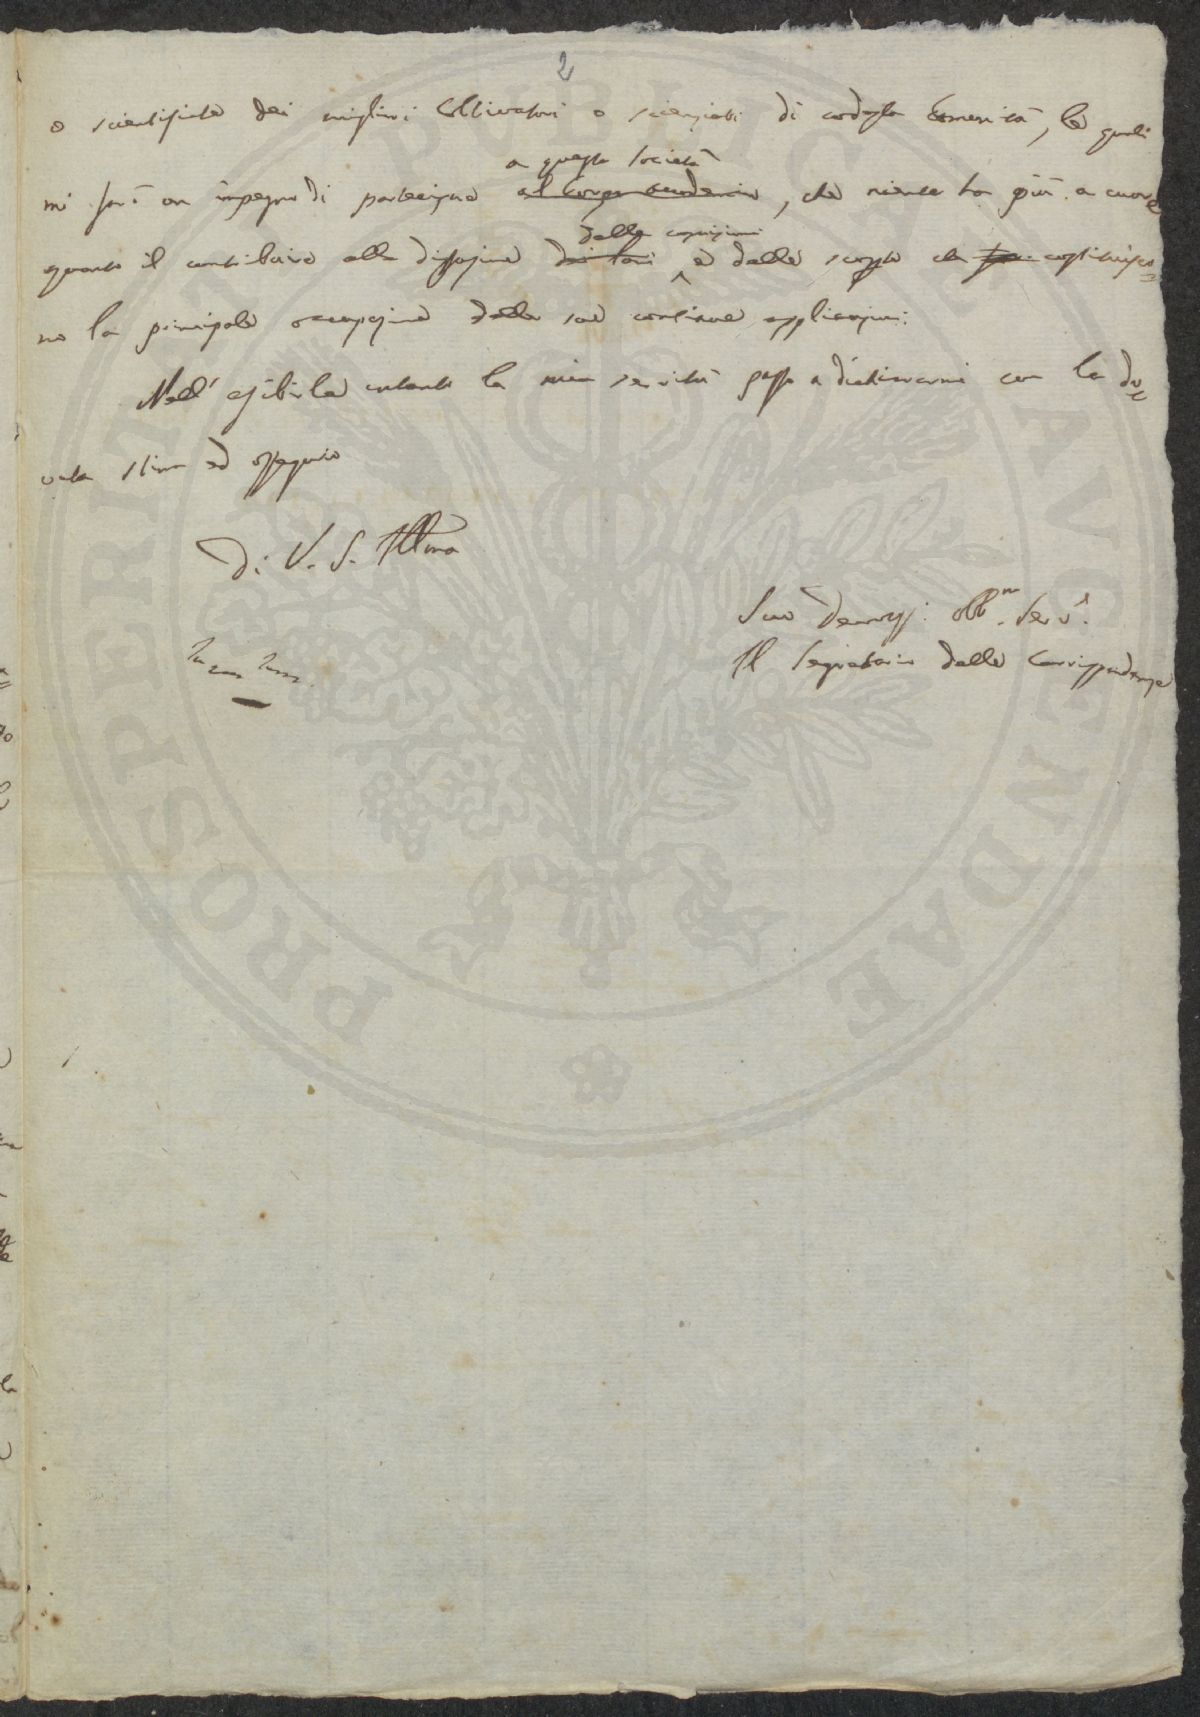 2
o scientifiche dei migliori Coltivatori o scienziati di codesta Comunità, le quali
a questa Società
mi farò un impegno di partecipare al Corpo accademico, che niente ha più a cuore
delle cognizioni
quanto il contribuire alla diffusione dei e delle scoperte che costituisco=
no la principale occupazione delle sue continue applicazioni.
Nell' esibirle intanto la mia servitù passo a dichiararmi con la do=
vuta stima ed ossequio
Di V. S. Illma
Suo Devotiss. Obb.mo Serv.
Il Segretario delle Corrispondenze
PROSPERITATI PUBLICAE AUGENDAE